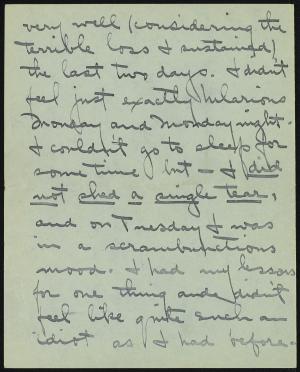 very well (considering the
terrible loss I sustained)
the last two days. I didn't
feel just exactly hilarious
Monday and Monday night.
I couldn't go to sleep for
some time but - I did
not shed a single tear,
and on Tuesday I was
in a scrambunctious
mood. I had my lessons
for one thing and didn't
feel like quite such an
idiot as I had before-